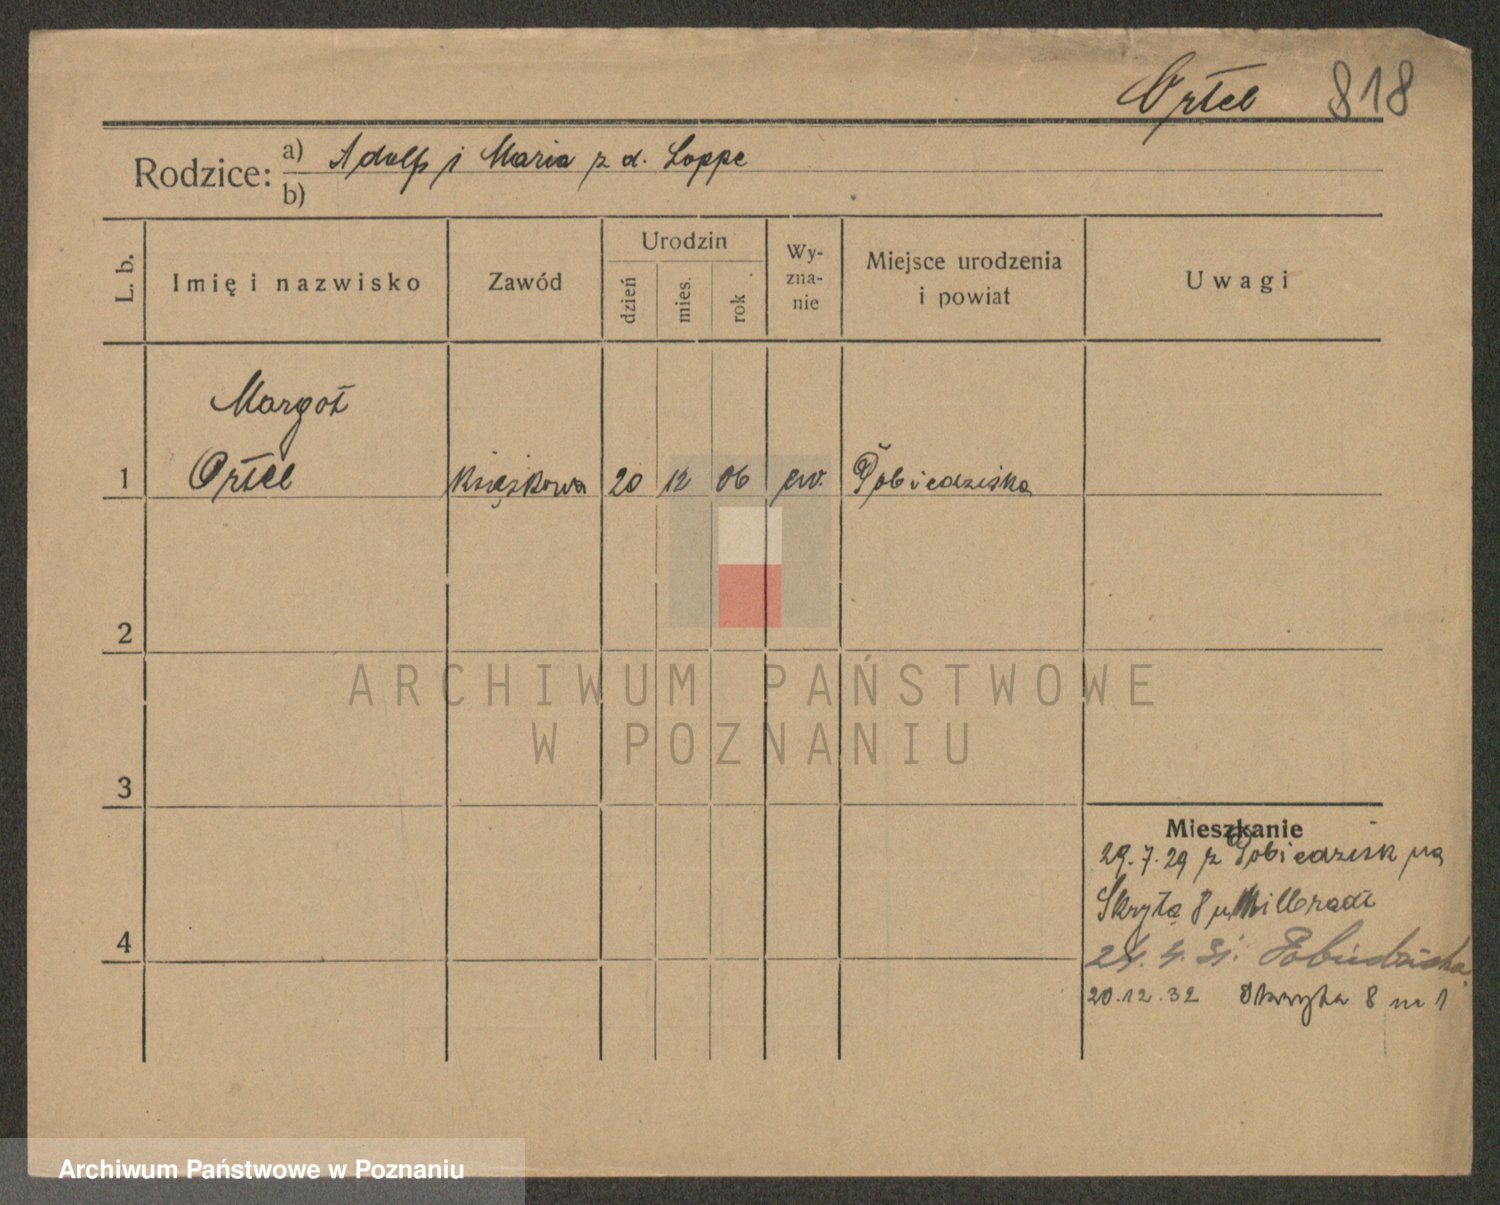 Ortel 818
Rodzice: a) Adolf i Maria z d. Loppe
b)
L. b.
Imię i nazwisko
Zawód
Urodzin
dzień
mies.
rok
Wy-
zna-
nie
Miejsce urodzenia
i powiat
Uwagi
Margot
1 Ortel Książkowa 20 12 06 ew. Pobiedziska
2
3
4
Mieszkanie
29.7.29 z Pobiedzisk na
Skrytą 8 u Hillbradt
24.4.31. Pobiedziska
20.12.32 Skryta 8 m 1
ARCHIWUM PAŃSTWOWE
W POZNANIU
Archiwum Państwowe w Poznaniu